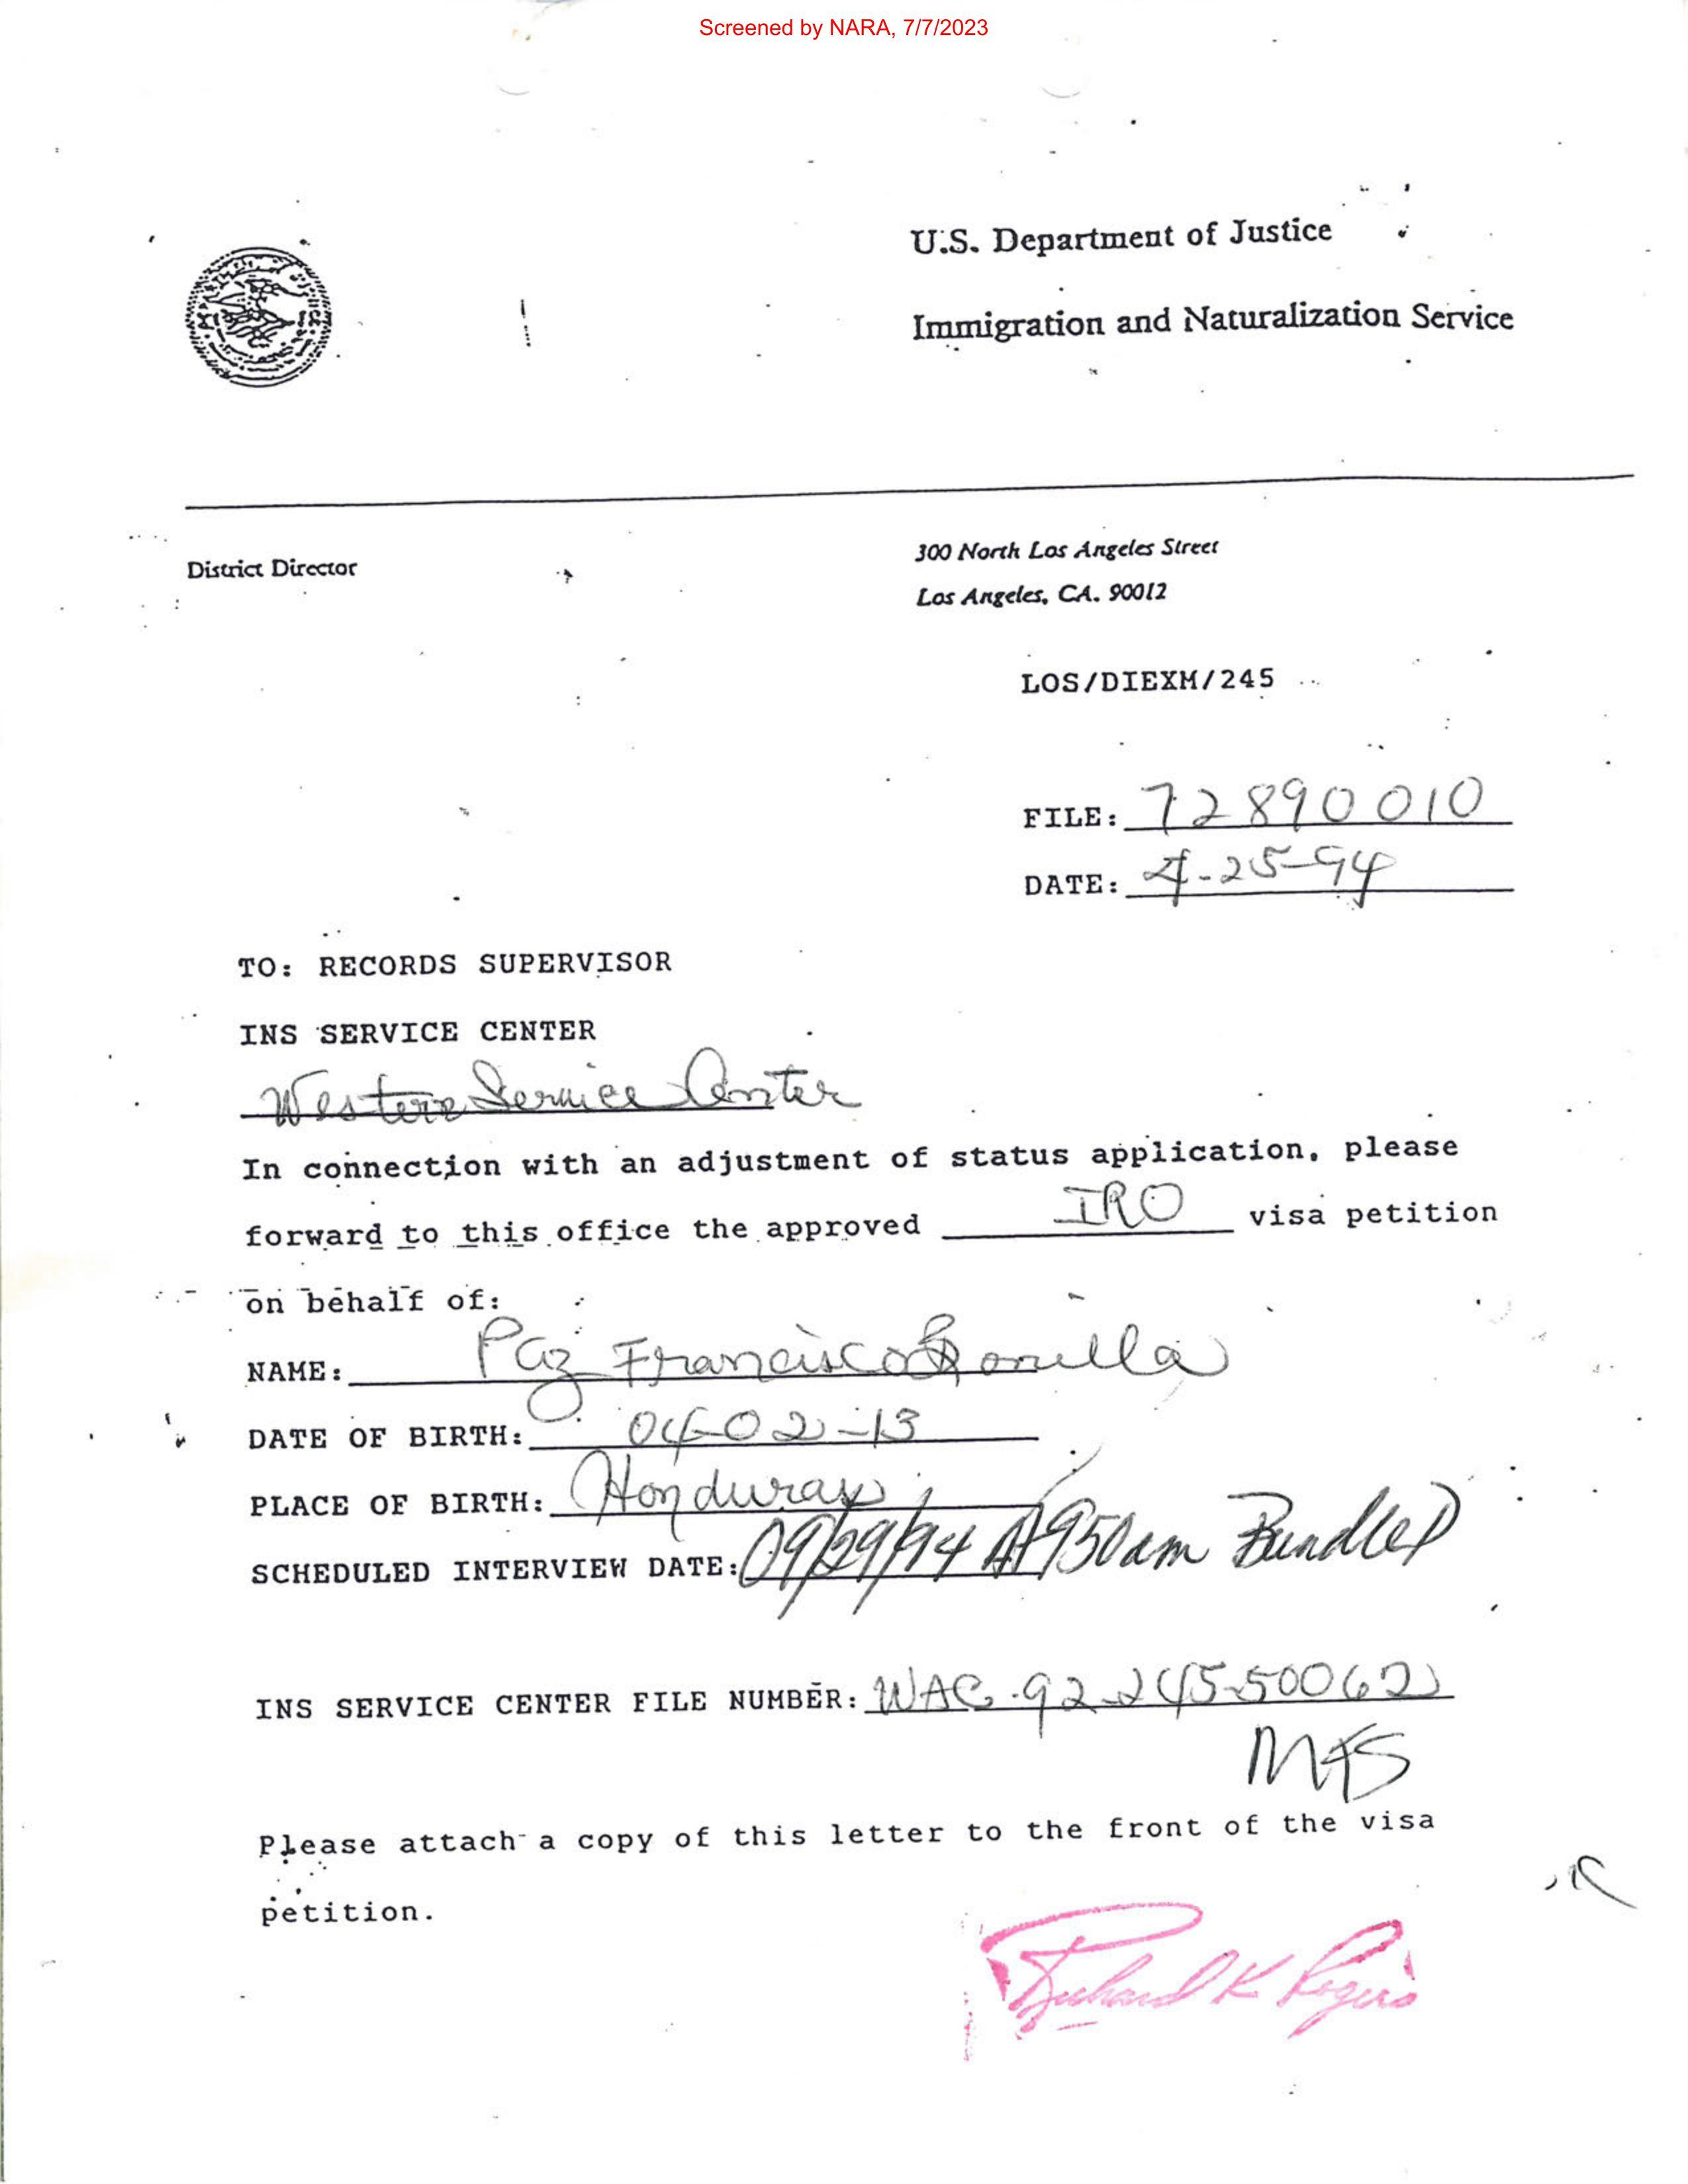 Screened by NARA, 7/7/2023
U.S. Department of Justice
Immigration and Naturalization Service
District Director
300 North Los Angeles Street
Los Angeles, CA. 90012
LOS/DIEXM/245
FILE: 72890010
DATE: 4-25-94
TO: RECORDS SUPERVISOR
INS SERVICE CENTER
Western Service Center
In connection with an adjustment of status application, please
forward to this office the approved IRO visa petition
on behalf of:
NAME: Paz Francisco Bonilla
DATE OF BIRTH: 04-02-13
PLACE OF BIRTH: Honduras
SCHEDULED INTERVIEW DATE: 09/29/94 At 950am Bundled
INS SERVICE CENTER FILE NUMBER: WAC-92-245-50062
Please attach a copy of this letter to the front of the visa
petition.
Richard K Rogers